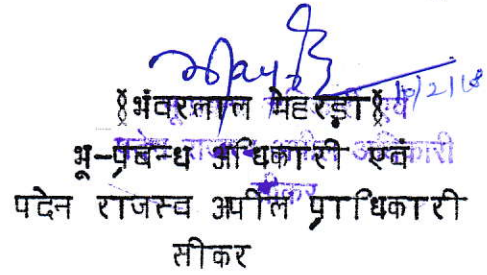 16/2/18
§भंवरलाल मेहरड़ा§
भू-प्रबन्ध अधिकारी एवं
पदेन राजस्व अपील प्राधिकारी
सीकर
सीकर